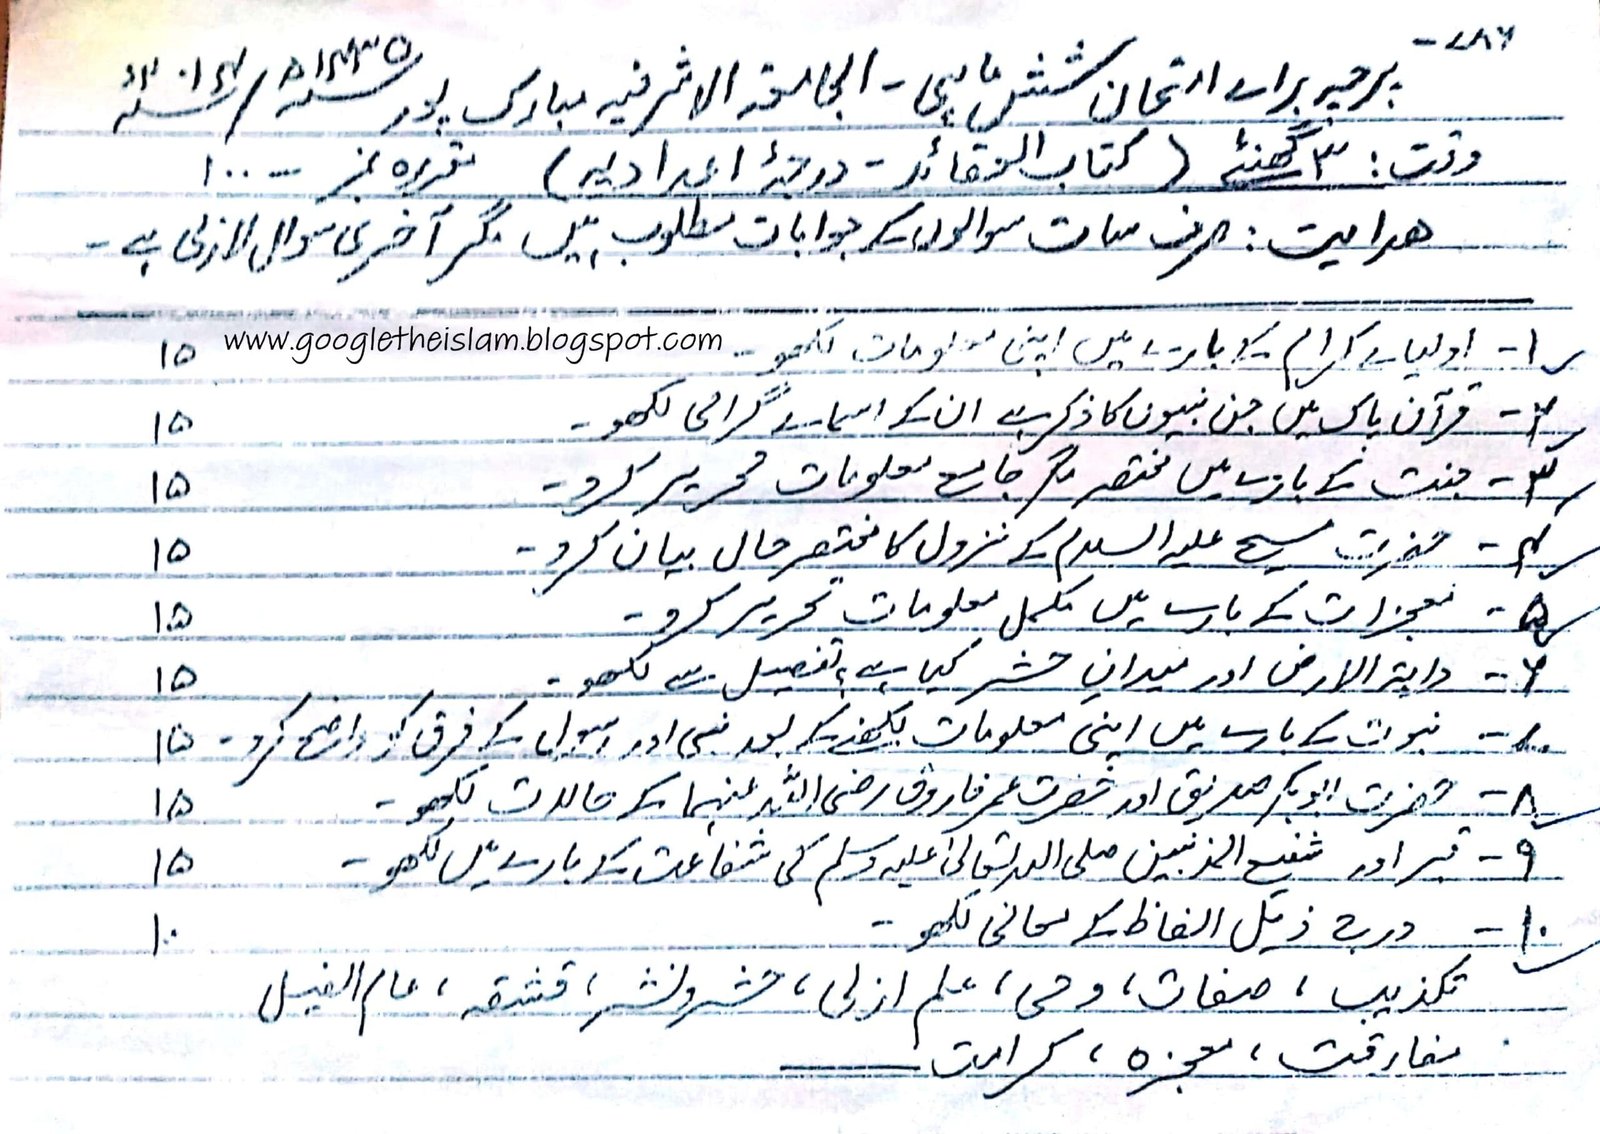 ۷۸۶-
پرچہ براے امتحان شش ماہی - الجامعۃ الاشرفیہ مبارک پور ۱۴۳۵ھ / ۲۰۱۴ء
وقت: ۳ گھنٹے (کتاب العقائد - درجۂ اعدادیہ) مقررہ نمبر - ۱۰۰
ھدایت: صرف سات سوالوں کے جوابات مطلوب ہیں مگر آخری سوال لازمی ہے -
۱- اولیاے کرام کے بارے میں اپنی معلومات لکھو - ۱۵
www.googletheislam.blogspot.com
۲- قرآن پاک میں جن نبیوں کا ذکر ہے ان کے اسماے گرامی لکھو - ۱۵
۳- جنت کے بارے میں مختصر مگر جامع معلومات تحریر کرو - ۱۵
۴- حضرت مسیح علیہ السلام کے نزول کا مختصر حال بیان کرو - ۱۵
۵- معجزات کے بارے میں مکمل معلومات تحریر کرو - ۱۵
۶- دابۃ الارض اور میدانِ حشر کیا ہے، تفصیل سے لکھو - ۱۵
۷- نبوت کے بارے میں اپنی معلومات لکھنے کے بعد نبی اور رسول کے فرق کو واضح کرو - ۱۵
۸- حضرت ابوبکر صدیق اور حضرت عمر فاروق رضی اللہ عنہما کے حالات لکھو - ۱۵
۹- قبر اور شفیع المذنبین صلی اللہ تعالیٰ علیہ وسلم کی شفاعت کے بارے میں لکھو - ۱۵
۱۰- درج ذیل الفاظ کے معانی لکھو - ۱۰
تکذیب، صفات، وحی، علم ازلی، حشر ونشر، قشقہ، عام الفیل
مفارقت، معجزہ، کرامت